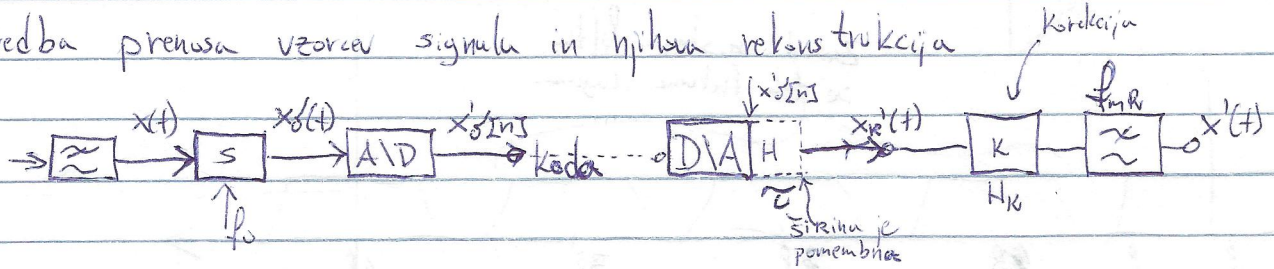 edba prenosa vzorcev signala in njihova rekonstrukcija
korekcija
x(t) x'δ(t) x'δ[n] x'δ[n] xR'(t) fmR x'(t)
S A\D koda D\A H K
f0 τ HK
širina je
pomembna